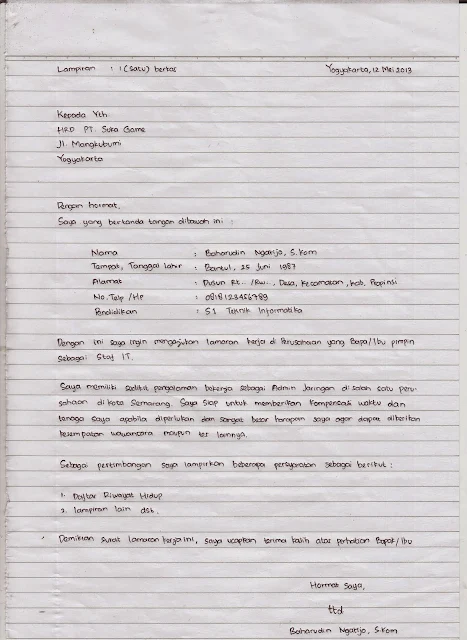 Lampiran : 1 (Satu) berkas
Yogyakarta, 12 Mei 2013
Kepada Yth.
HRD PT. Suka Game
Jl. Mangkubumi
Yogyakarta
Dengan hormat,
Saya yang bertanda tangan dibawah ini :
Nama : Baharudin Ngatijo, S.Kom
Tempat, Tanggal lahir : Bantul, 25 Juni 1987
Alamat : Dusun Rt.. /Rw.. , Desa, Kecamatan, Kab, Propinsi
No. Telp /Hp : 0818123456789
Pendidikan : S1 Teknik Informatika
Dengan ini saya ingin mengajukan lamaran kerja di Perusahaan yang Bapa/Ibu pimpin
sebagai Staf IT.
Saya memiliki sedikit pengalaman bekerja sebagai Admin Jaringan di salah satu peru-
sahaan di kota Semarang. Saya siap untuk memberikan kompensasi waktu dan
tenaga saya apabila diperlukan dan sangat besar harapan saya agar dapat diberikan
kesempatan wawancara maupun tes lainnya.
Sebagai pertimbangan saya lampirkan beberapa persyaratan sebagai berikut :
1. Daftar Riwayat Hidup
2. lampiran lain dsk.
Demikian surat lamaran kerja ini, saya ucapkan terima kasih atas perhatian Bapak/Ibu
Hormat Saya,
ttd
Baharudin Ngatijo, S.Kom